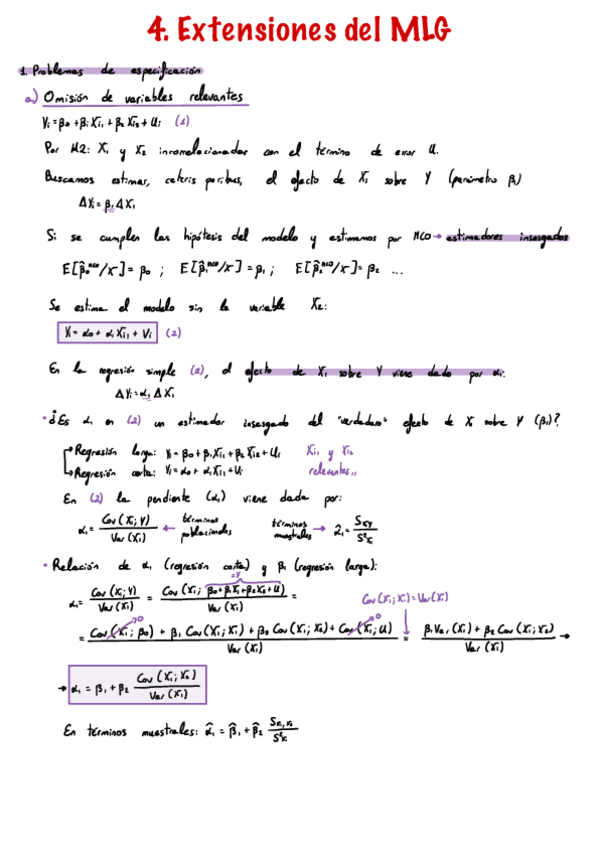 4. Extensiones del MLG
1. Problemas de especificación
a) Omisión de variables relevantes
Yi = β0 + β1 Xi1 + β2 Xi2 + Ui (1)
Por H2: X1 y X2 incorrelacionadas con el término de error U.
Buscamos estimar, ceteris paribus, el efecto de X1 sobre Y (parámetro β1)
ΔYi = β1 ΔX1
Si se cumplen las hipótesis del modelo y estimamos por MCO → estimadores insesgados
E[β̂0^MCO/X] = β0 ; E[β̂1^MCO/X] = β1 ; E[β̂2^MCO/X] = β2 ...
Se estima el modelo sin la variable X2:
Yi = α0 + α1 Xi1 + Vi (2)
En la regresión simple (2), el efecto de X1 sobre Y viene dado por α1:
ΔYi = α1 ΔX1
· ¿Es α1 en (2) un estimador insesgado del "verdadero" efecto de X1 sobre Y (β1)?
Regresión larga: Yi = β0 + β1 Xi1 + β2 Xi2 + Ui Xi1 y Xi2
Regresión corta: Yi = α0 + α1 Xi1 + Vi relevantes
En (2) la pendiente (α1) viene dada por:
α1 = Cov(X1; Y) / Var(X1) ← términos poblacionales términos muestrales → α̂1 = SX1Y / S²X1
· Relación de α1 (regresión corta) y β1 (regresión larga):
α1 = Cov(X1; Y) / Var(X1) = Cov(X1; β0 + β1X1 + β2X2 + U) / Var(X1) =
=Y
Cov(X1; X1) = Var(X1)
= Cov(X1; β0) + β1 Cov(X1; X1) + β2 Cov(X1; X2) + Cov(X1; U) / Var(X1) = β1 Var(X1) + β2 Cov(X1; X2) / Var(X1) →
→ α1 = β1 + β2 Cov(X1; X2) / Var(X1)
En términos muestrales: α̂1 = β̂1 + β̂2 SX1,X2 / S²X1